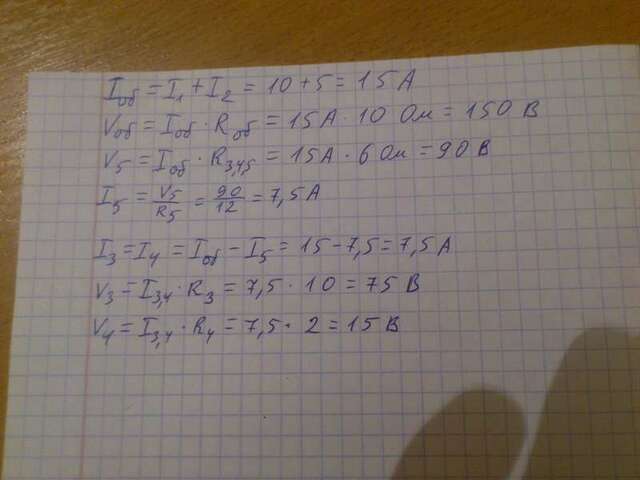 Iоб = I1 + I2 = 10 + 5 = 15 А
Vоб = Iоб · Rоб = 15 А · 10 Ом = 150 В
V5 = Iоб · R3,4,5 = 15 А · 6 Ом = 90 В
I5 = V5/R5 = 90/12 = 7,5 А
I3 = I4 = Iоб - I5 = 15 - 7,5 = 7,5 А
V3 = I3,4 · R3 = 7,5 · 10 = 75 В
V4 = I3,4 · R4 = 7,5 · 2 = 15 В